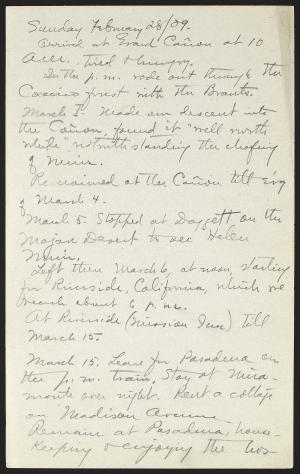 Sunday February 28/09.
Arrived at Grand Cañon at 10
A.M. tired & hungry.
In the p.m. rode out through the
Coconino forest with the Brants.
March 1. Made our descent into
the Cañon, found it "well worth
while" notwithstanding the chafing
of Muir.
Remained at the Cañon till Ev'g
of March 4.
March 5. Stopped at Daggett on the
Mojave Desert to see Helen
Muir.
Left there March 6, at noon, starting
for Riverside, California, which we
reach about 6 p.m.
At Riverside (Mission Inn) till
March 15.
March 15. Leave for Pasadena on
the p.m. train, Stay at Mira-
monte over night. Rent a cottage
on Madison Avenue
Remain at Pasadena, house-
keeping & enjoying the hos-